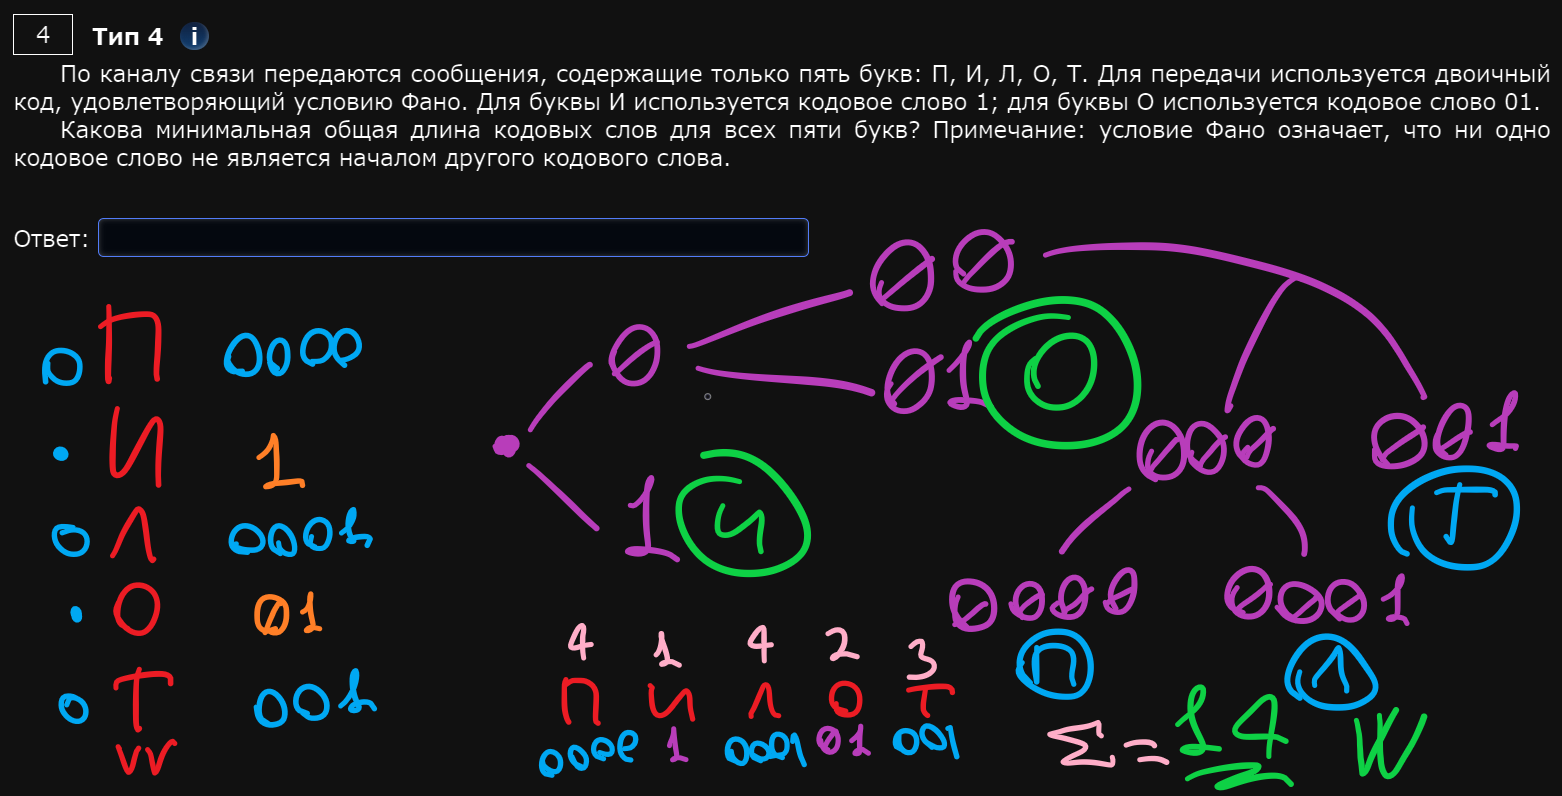 4 Тип 4 i
По каналу связи передаются сообщения, содержащие только пять букв: П, И, Л, О, Т. Для передачи используется двоичный
код, удовлетворяющий условию Фано. Для буквы И используется кодовое слово 1; для буквы О используется кодовое слово 01.
Какова минимальная общая длина кодовых слов для всех пяти букв? Примечание: условие Фано означает, что ни одно
кодовое слово не является началом другого кодового слова.
Ответ:
П 0000
И 1
Л 0001
О 01
Т 001
0
1 И
00
01 О
000
001
Т
0000
0001
П
Л
4 1 4 2 3
П И Л О Т
0000 1 0001 01 001
Σ = 14